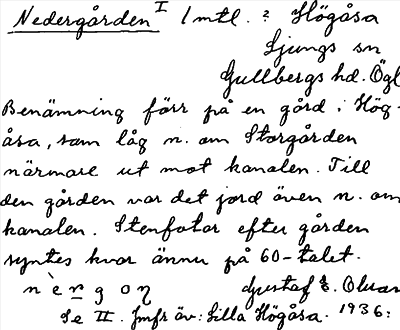 Nedergården I 1 mtl. ? Högåsa
Ljungs sn
Gullbergs hd. Ögl
Benämning förr på en gård i Hög-
åsa, som låg n. om Storgården
närmare ut mot kanalen. Till
den gården var det jord även n. om
kanalen. Stenfotar efter gården
syntes kvar ännu på 60-talet.
Gustaf E. Olsson
Se II. Jmfr äv: Lilla Högåsa. 1936: